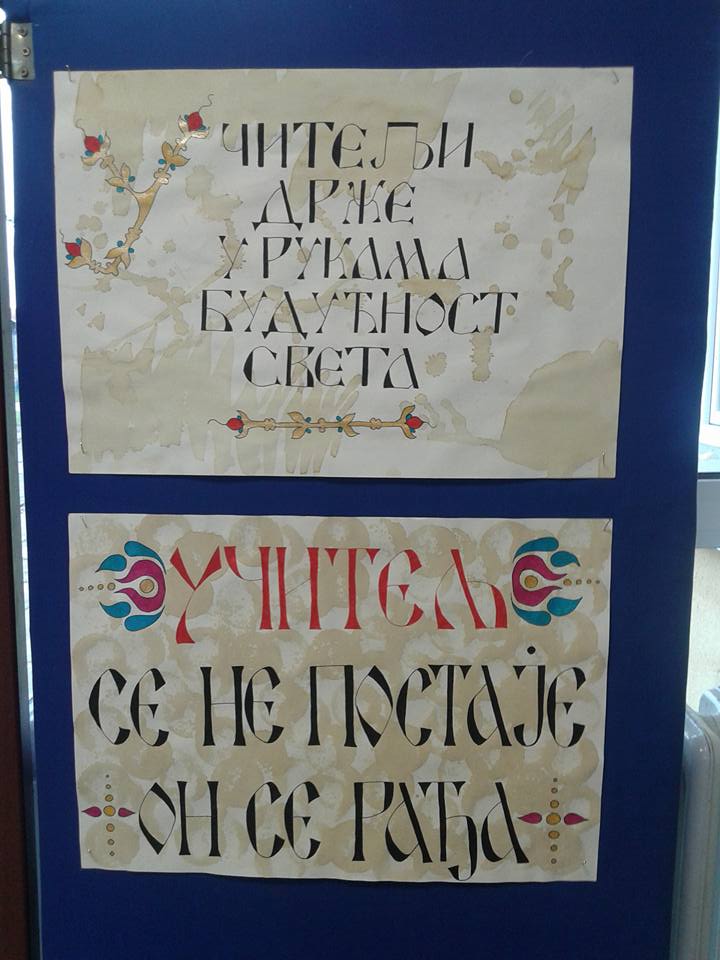 УЧИТЕЉИ
ДРЖЕ
У РУКАМА
БУДУЋНОСТ
СВЕТА
УЧИТЕЉ
СЕ НЕ ПОСТАЈЕ
ОН СЕ РАЂА